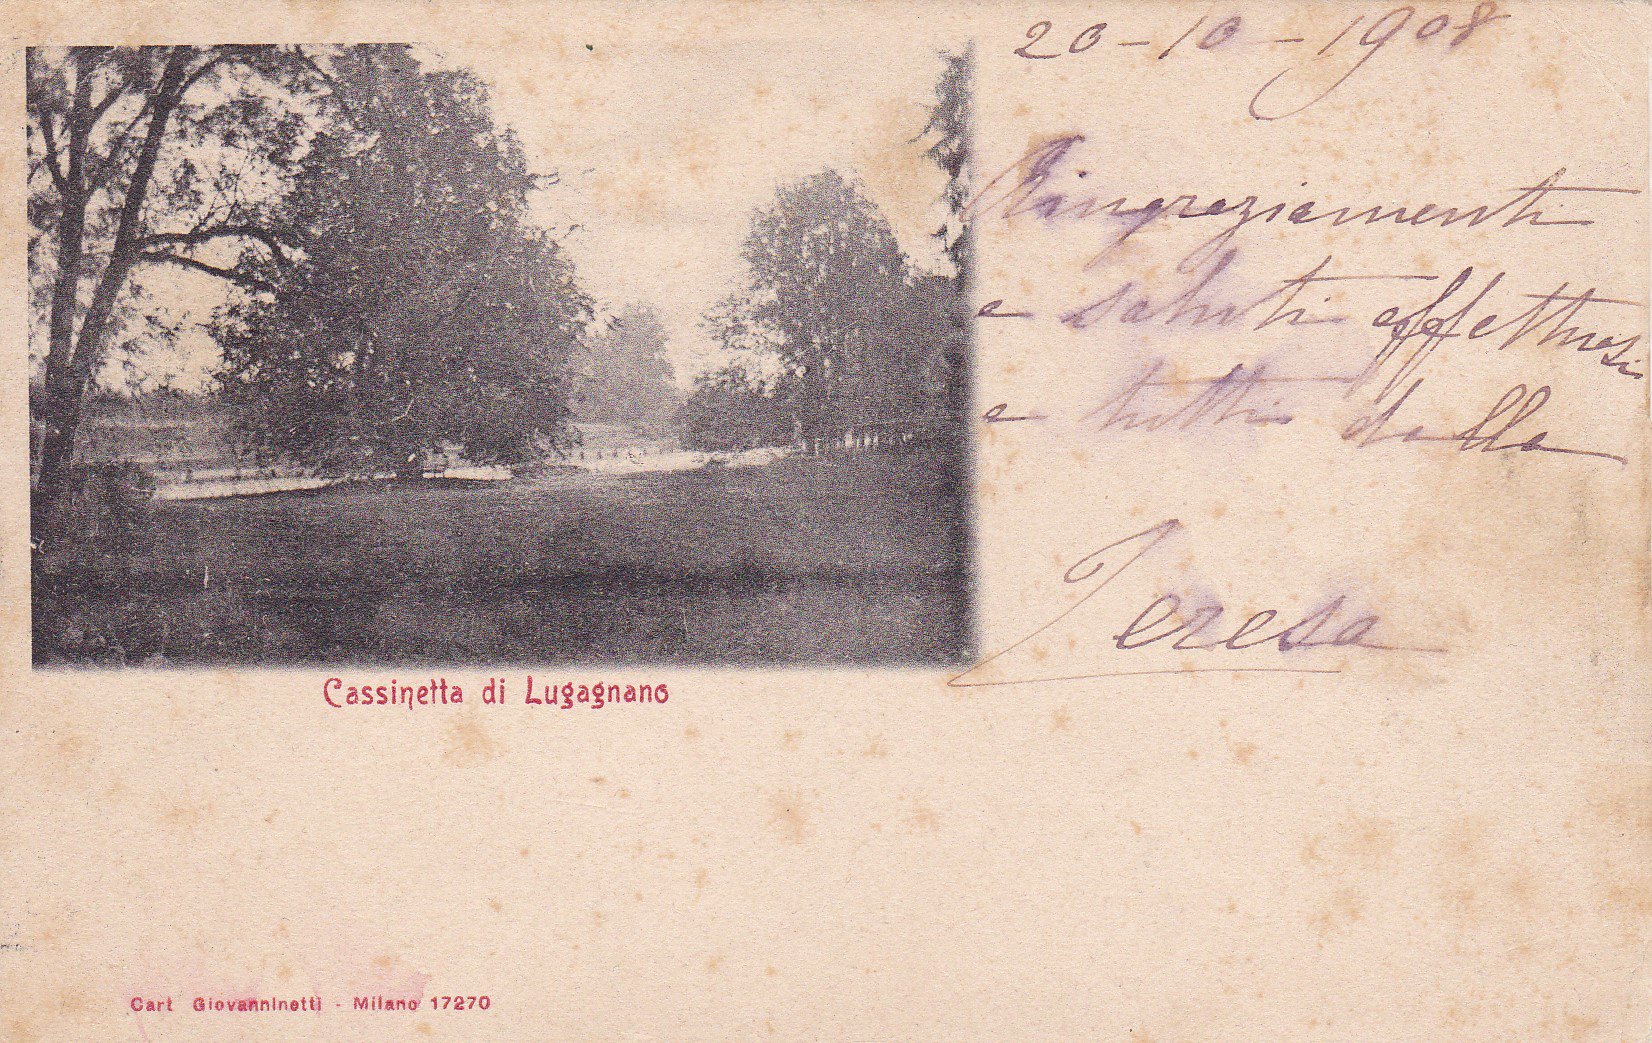 20-10-1908
Ringraziamenti
e saluti affettuosi
a tutti dalla
Teresa
Cassinetta di Lugagnano
Cart Giovanninetti - Milano 17270